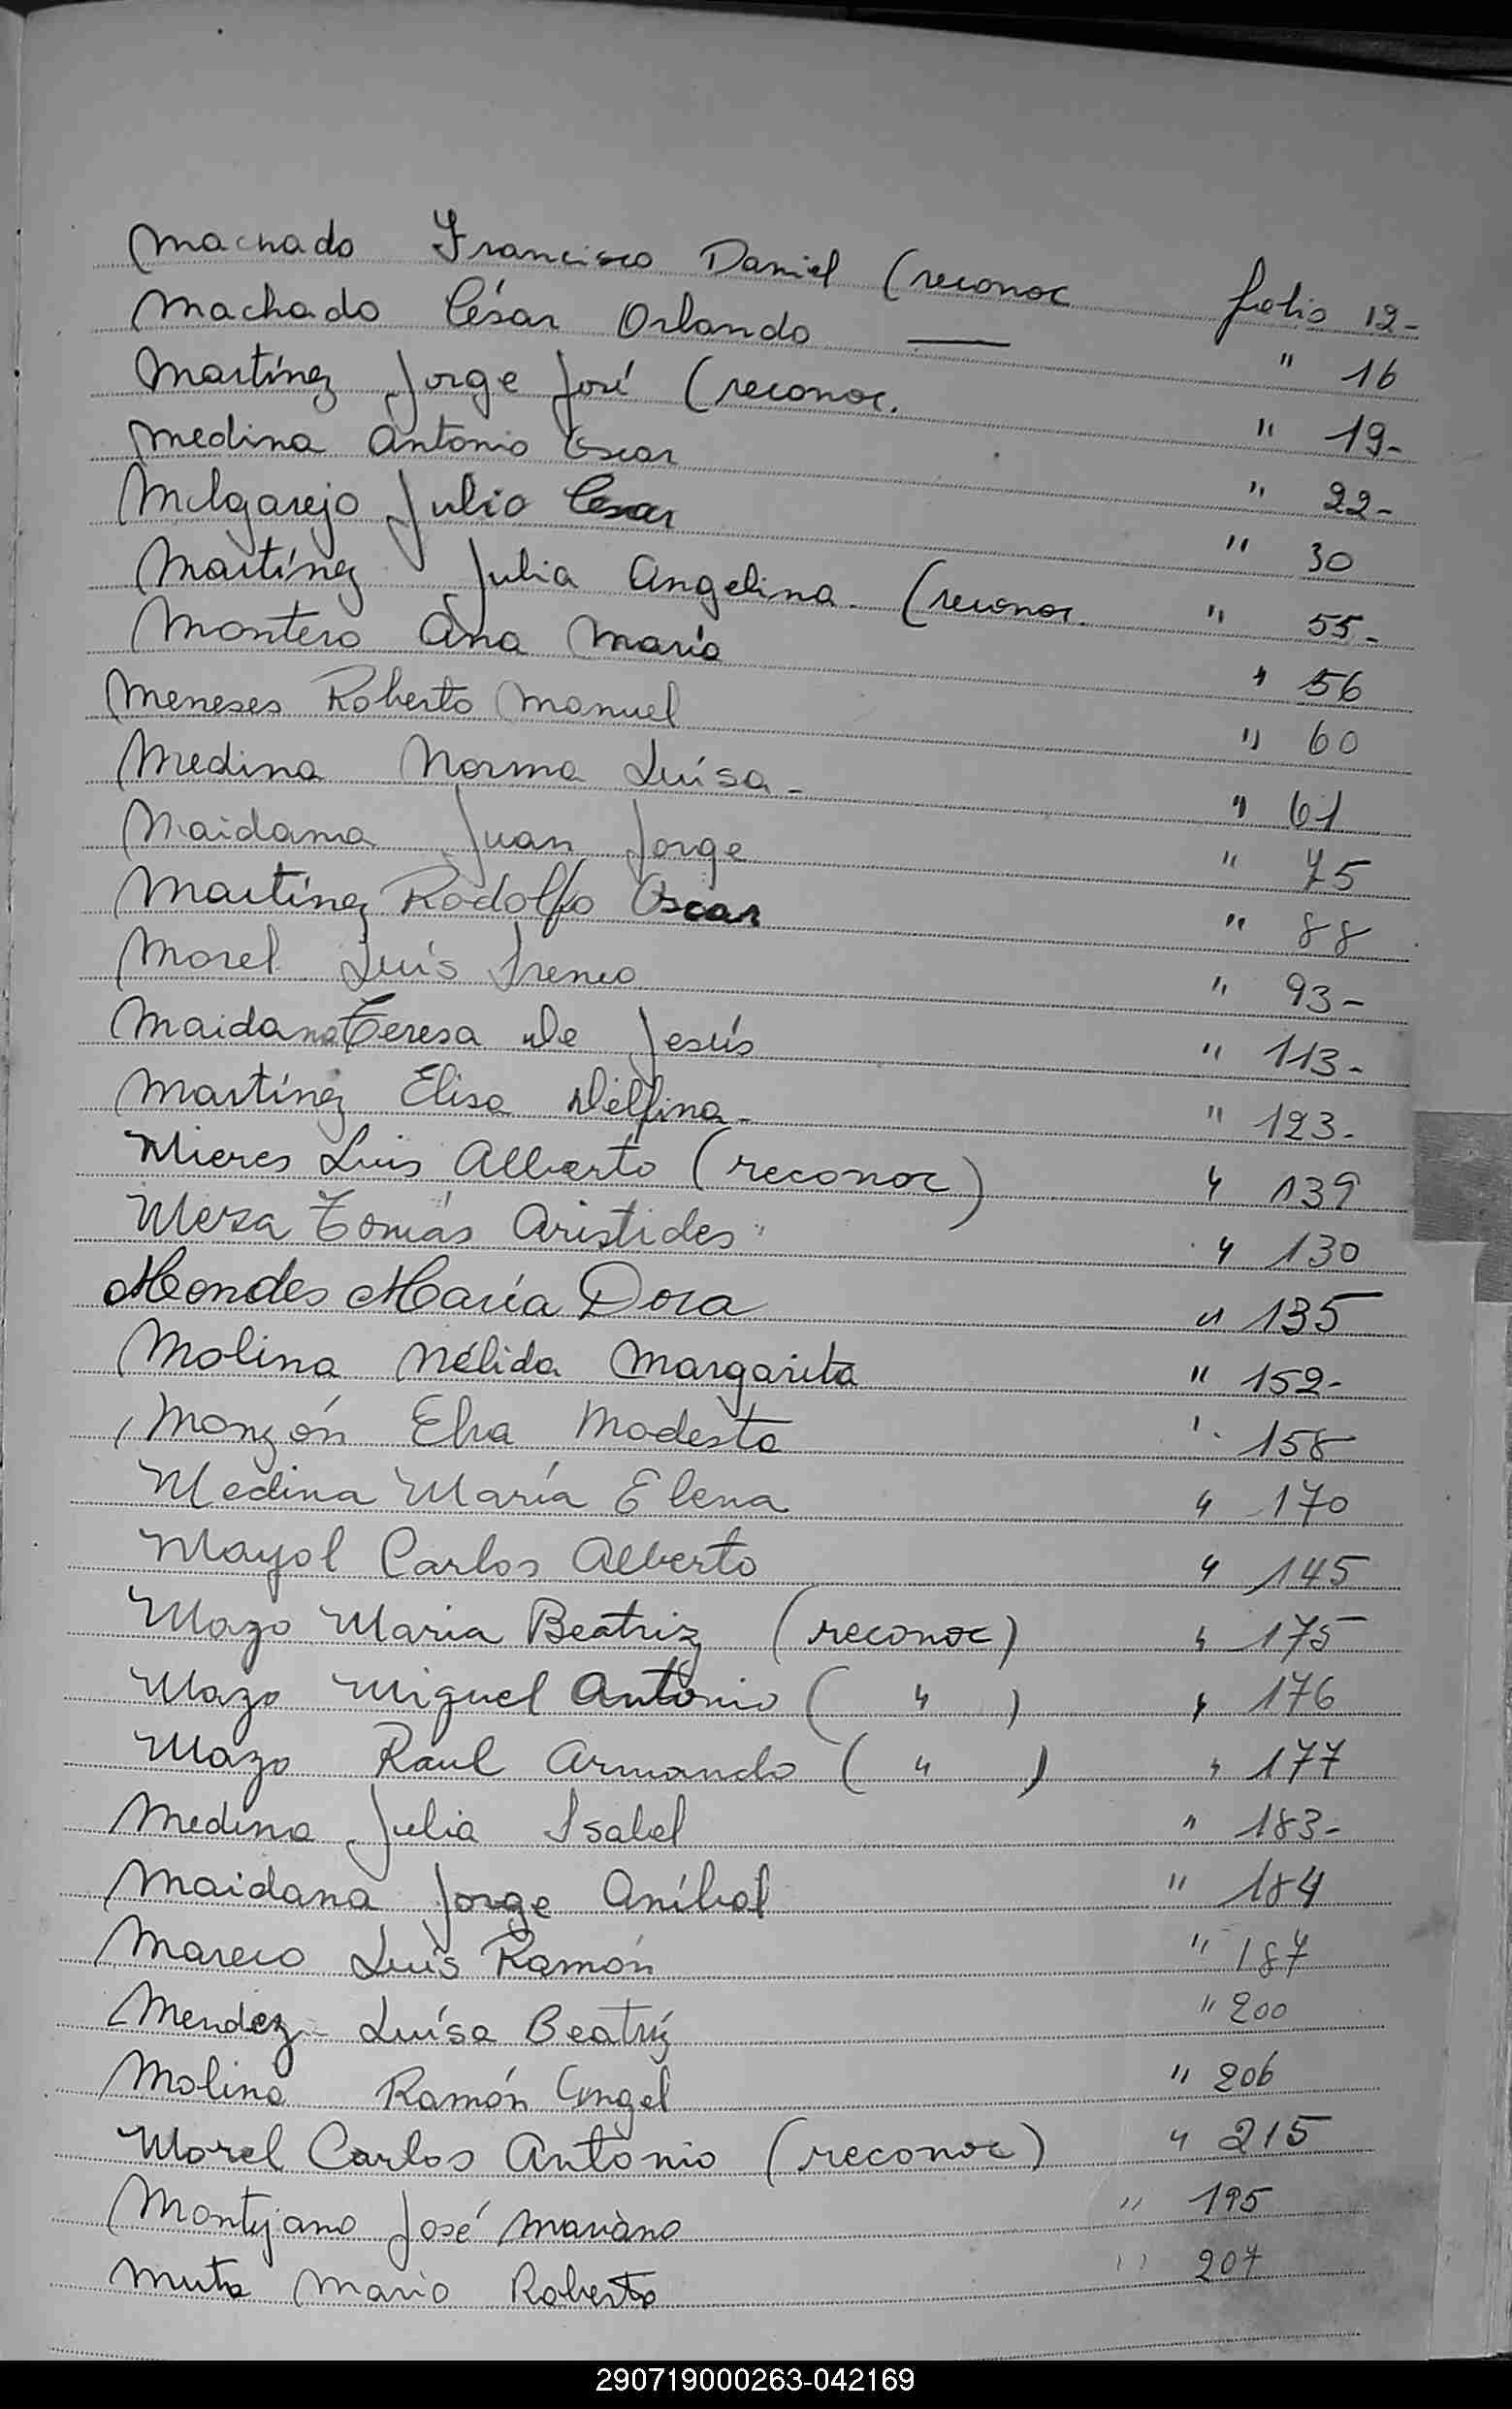 Machado Francisco Daniel (reconoc folio 12-
Machado César Orlando — " 16
Martínez Jorge José (reconoc. " 19-
Medina Antonio Oscar " 22-
Melgarejo Julio Cesar " 30
Martínez Julia Angelina - (reconoc. " 55-
Montero Ana María " 56
Meneses Roberto Manuel " 60
Medina Norma Luísa - " 61
Maidana Juan Jorge " 75
Martínez Rodolfo Oscar " 88
Morel Luís Ireneo " 93-
Maidana Teresa De Jesús " 113-
Martínez Elisa Delfina - " 123-
Mieres Luis Alberto (reconoc) " 139
Meza Tomás Aristides " 130
Mendes María Dora " 135
Molina Nélida Margarita " 152-
Monzón Elva Modesta " 158
Medina María Elena " 170
Mayol Carlos Alberto " 145
Mazo Maria Beatriz (reconoc) " 175
Mazo Miguel Antonio ( " ) " 176
Mazo Raul Armando ( " ) " 177
Medina Julia Isabel " 183-
Maidana Jorge Aníbal " 184
Mareco Luís Ramón " 187
Mendez Luísa Beatríz " 200
Molina Ramón Angel " 206
Morel Carlos Antonio (reconoc) " 215
Montejano José Mariano " 195
Muta Mario Roberto " 207
290719000263-042169